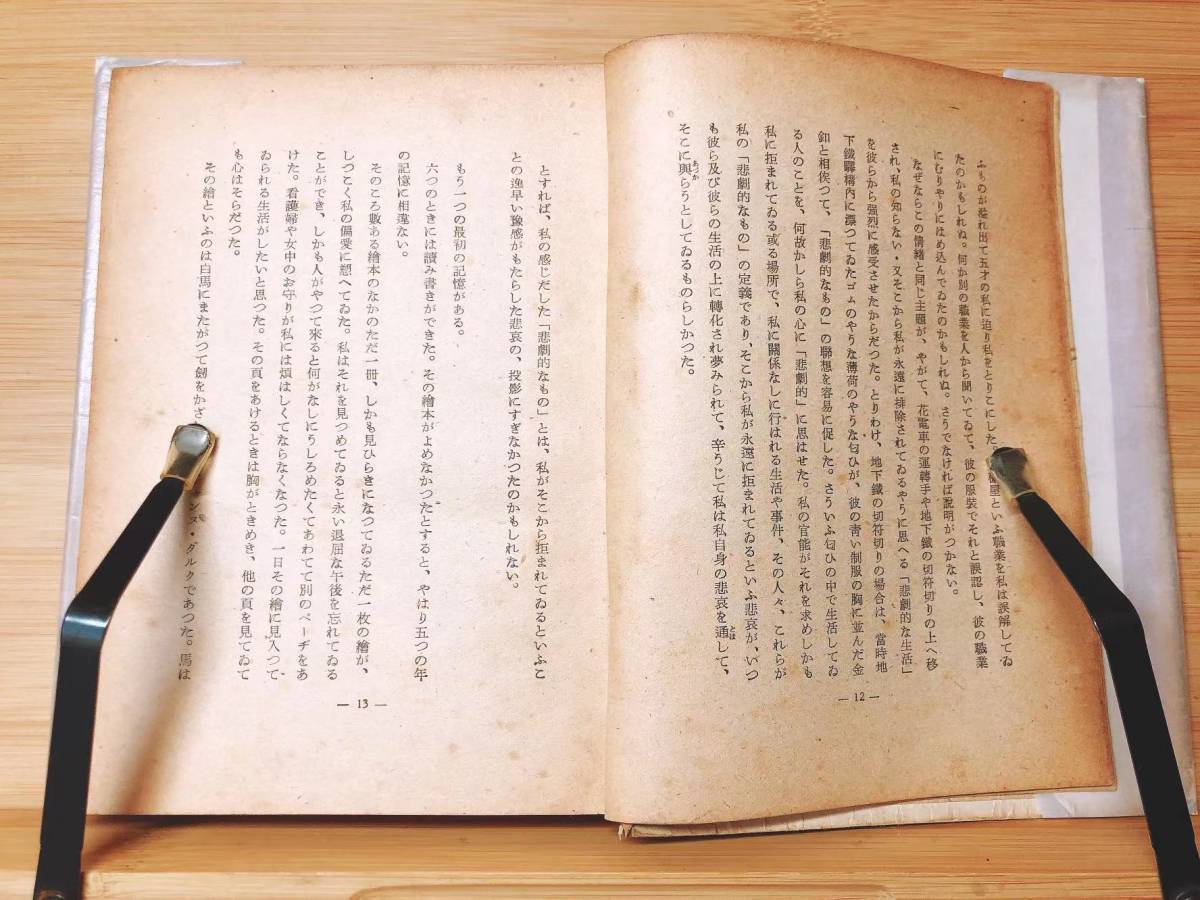 ふものが溢れ出て五才の私に迫り私をとりこにした。
屋といふ職業を私は誤解してゐ
たのかもしれぬ。何か別の職業を人から聞いてゐて、彼の服裝でそれと誤認し、彼の職業
にむりやりにはめ込んでゐたのかもしれぬ。さうでなければ說明がつかない。
なぜならこの情緒と同じ主題が、やがて、花電車の運轉手や地下鐵の切符切りの上へ移
され、私の知らない・又そこから私が永遠に排除されてゐるやうに思へる「悲劇的な生活」
を彼らから强烈に感受させたからだつた。とりわけ、地下鐵の切符切りの場合は、當時地
下鐵驛構內に漂つてゐたゴムのやうな薄荷のやうな匂ひが、彼の靑い制服の胸に並んだ金
釦と相俟つて、「悲劇的なもの」の聯想を容易に促した。さういふ匂ひの中で生活してゐ
る人のことを、何故かしら私の心に「悲劇的」に思はせた。私の官能がそれを求めしかも
私に拒まれてゐる或る場所で、私に關係なしに行はれる生活や事件、その人々、これらが
私の「悲劇的なもの」の定義であり、そこから私が永遠に拒まれてゐるといふ悲哀が、いつ
も彼ら及び彼らの生活の上に轉化され夢みられて、辛うじて私は私自身の悲哀を通して、
そこに與らうとしてゐるものらしかつた。
— 12 —
とすれば、私の感じだした「悲劇的なもの」とは、私がそこから拒まれてゐるといふこ
との逸早い豫感がもたらした悲哀の、投影にすぎなかつたのかもしれない。
もう一つの最初の記憶がある。
六つのときには讀み書きができた。その繪本がよめなかつたとすると、やはり五つの年
の記憶に相違ない。
そのころ數ある繪本のなかのただ一冊、しかも見ひらきになつてゐるただ一枚の繪が、
しつこく私の偏愛に愬へてゐた。私はそれを見つめてゐると永い退屈な午後を忘れてゐる
ことができ、しかも人がやつて來ると何がなしにうしろめたくてあわてて別のページをあ
けた。看護婦や女中のお守りが私には煩はしくてならなくなつた。一日その繪に見入つて
ゐられる生活がしたいと思つた。その頁をあけるときは胸がときめき、他の頁を見てゐて
も心はそらだつた。
その繪といふのは白馬にまたがつて劍をかざ
ンヌ・ダルクであつた。馬は
— 13 —